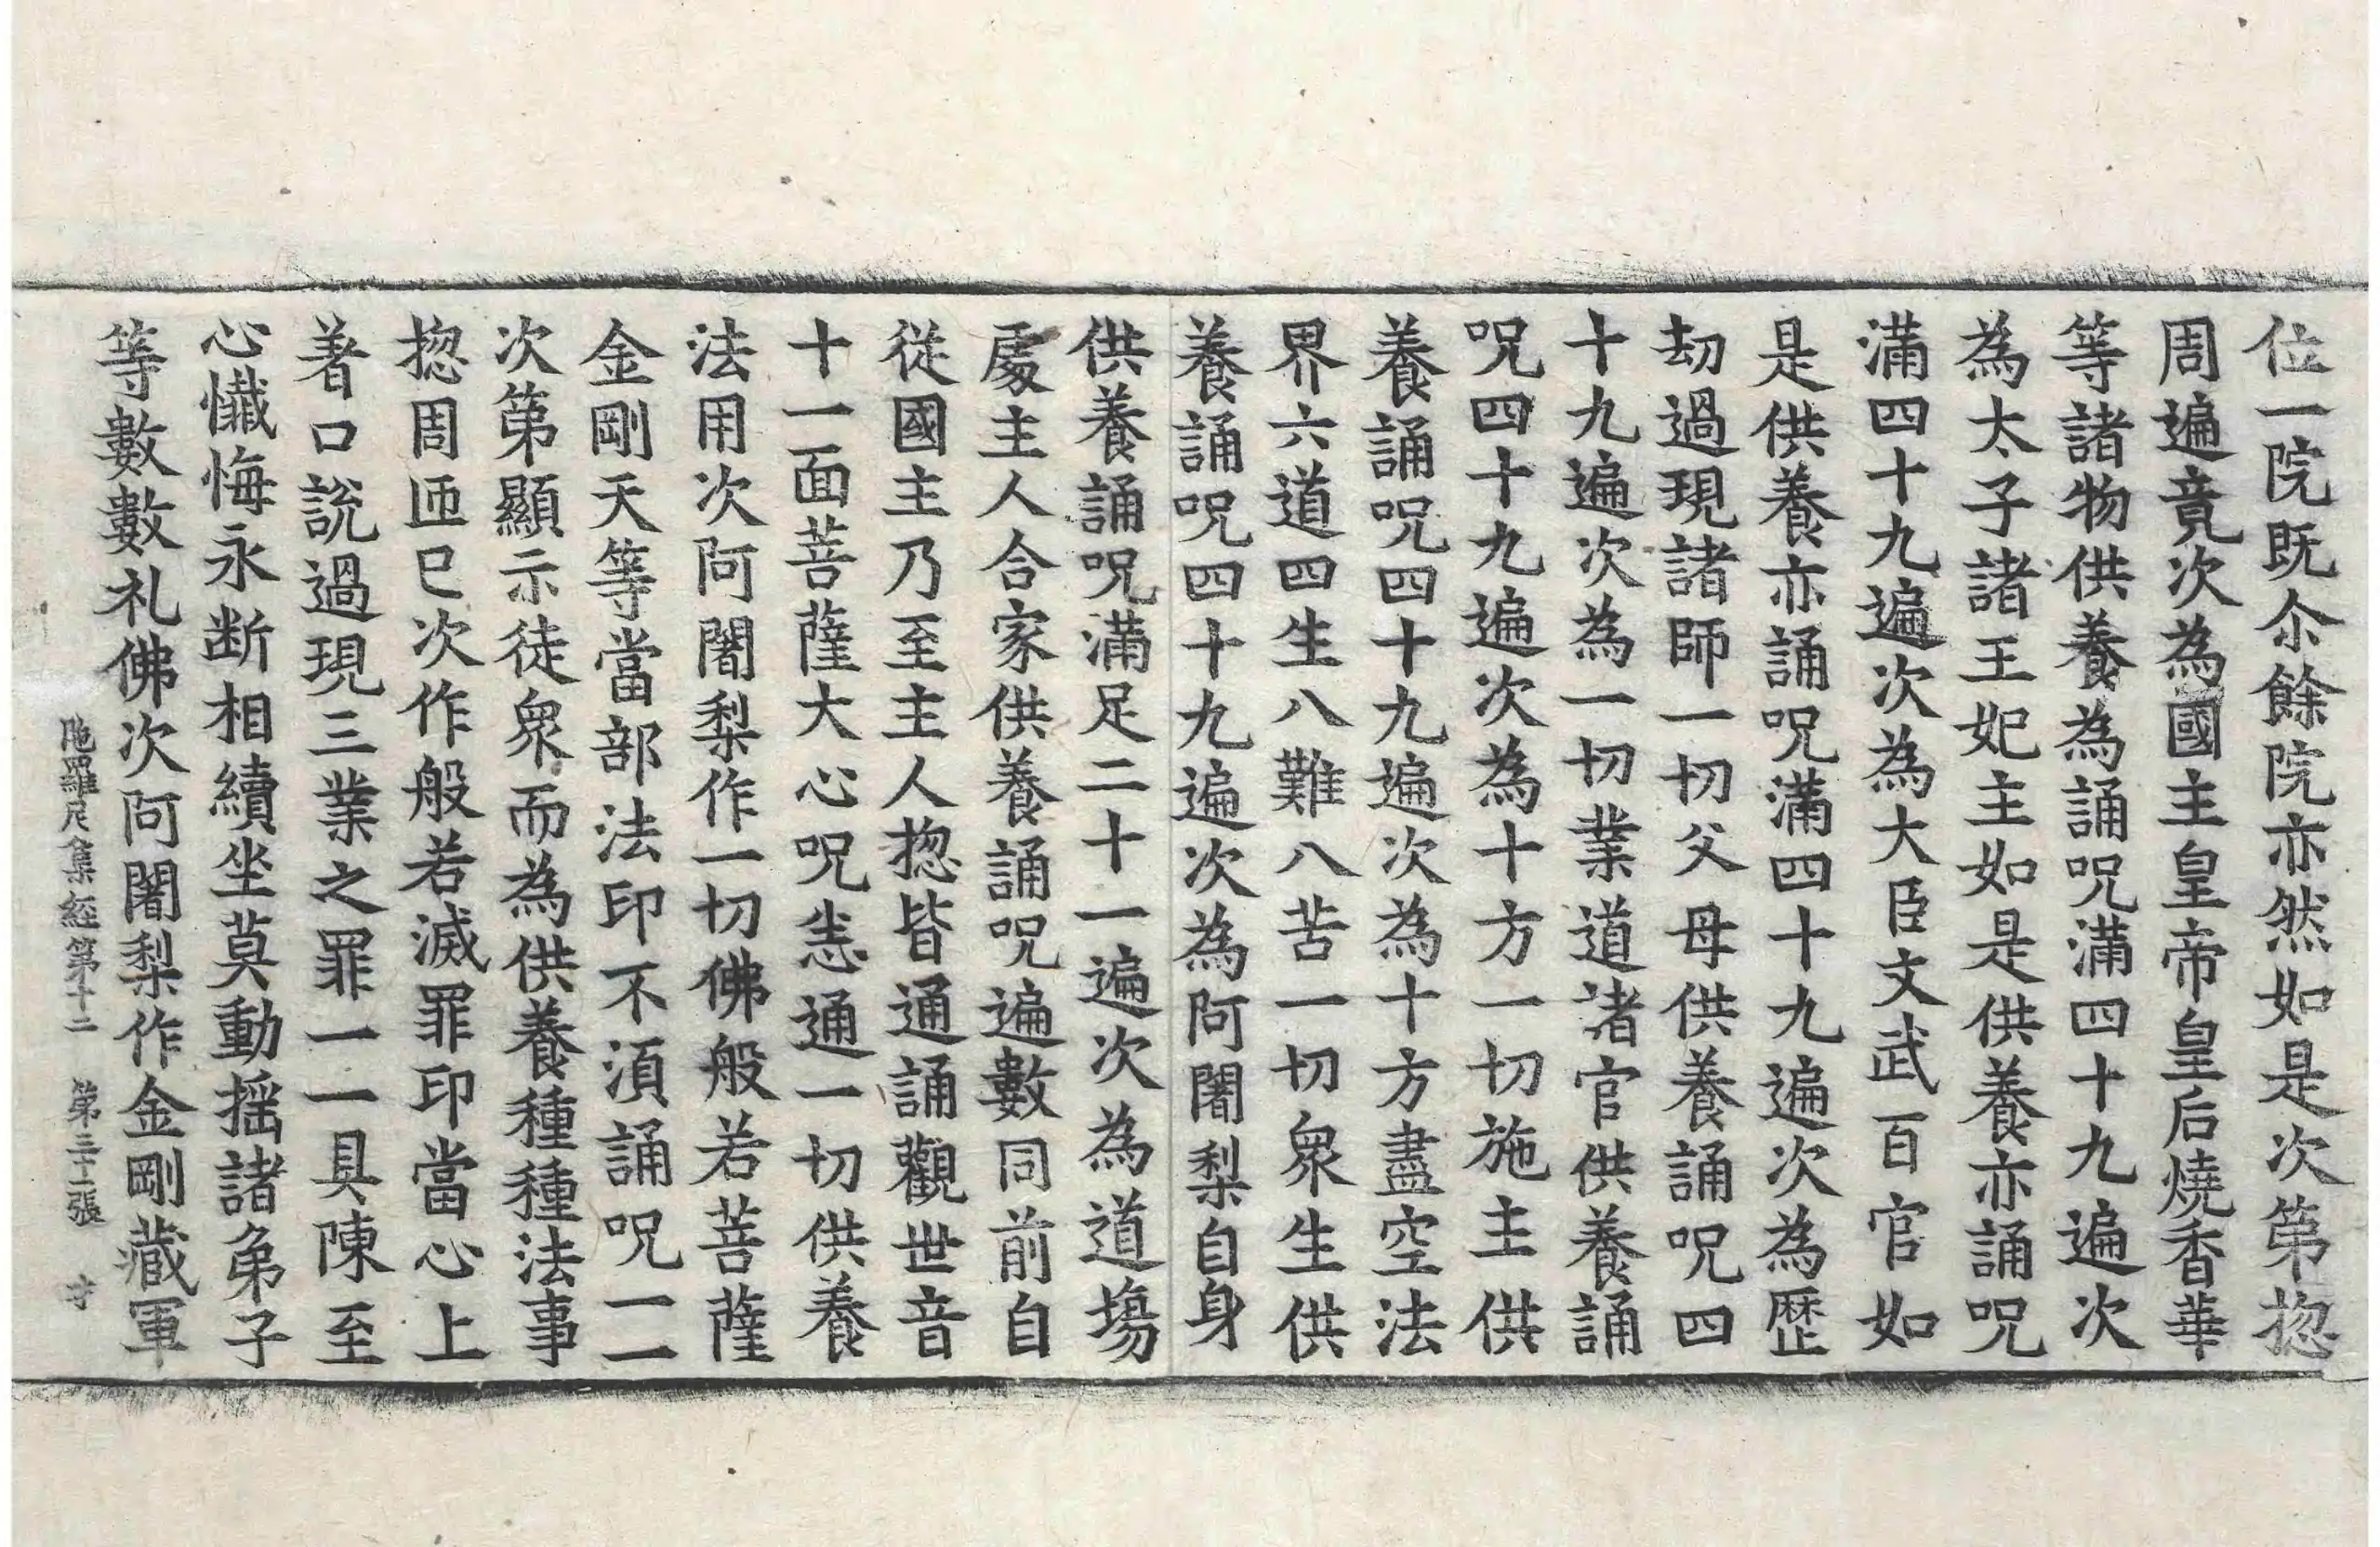 位一院既尒餘院亦然如是次第揔
周遍竟次為國主皇帝皇后燒香華
等諸物供養為誦呪滿四十九遍次
為太子諸王妃主如是供養亦誦呪
滿四十九遍次為大臣文武百官如
是供養亦誦呪滿四十九遍次為歷
劫過現諸師一切父母供養誦呪四
十九遍次為一切業道諸官供養誦
呪四十九遍次為十方一切施主供
養誦呪四十九遍次為十方盡空法
界六道四生八難八苦一切衆生供
養誦呪四十九遍次為阿闍梨自身
供養誦呪滿足二十一遍次為道場
處主人合家供養誦呪遍數同前自
從國主乃至主人揔皆通誦觀世音
十一面菩薩大心呪恙通一切供養
法用次阿闍梨作一切佛般若菩薩
金剛天等當部法印不湏誦呪一一
次第顯示徒衆而為供養種種法事
揔周迊巳次作般若滅罪印當心上
著口說過現三業之罪一一具陳至
心懺悔永断相續坐莫動搖諸弟子
等數數礼佛次阿闍梨作金剛藏軍
陁羅尼集經第十二　第三十二張　才